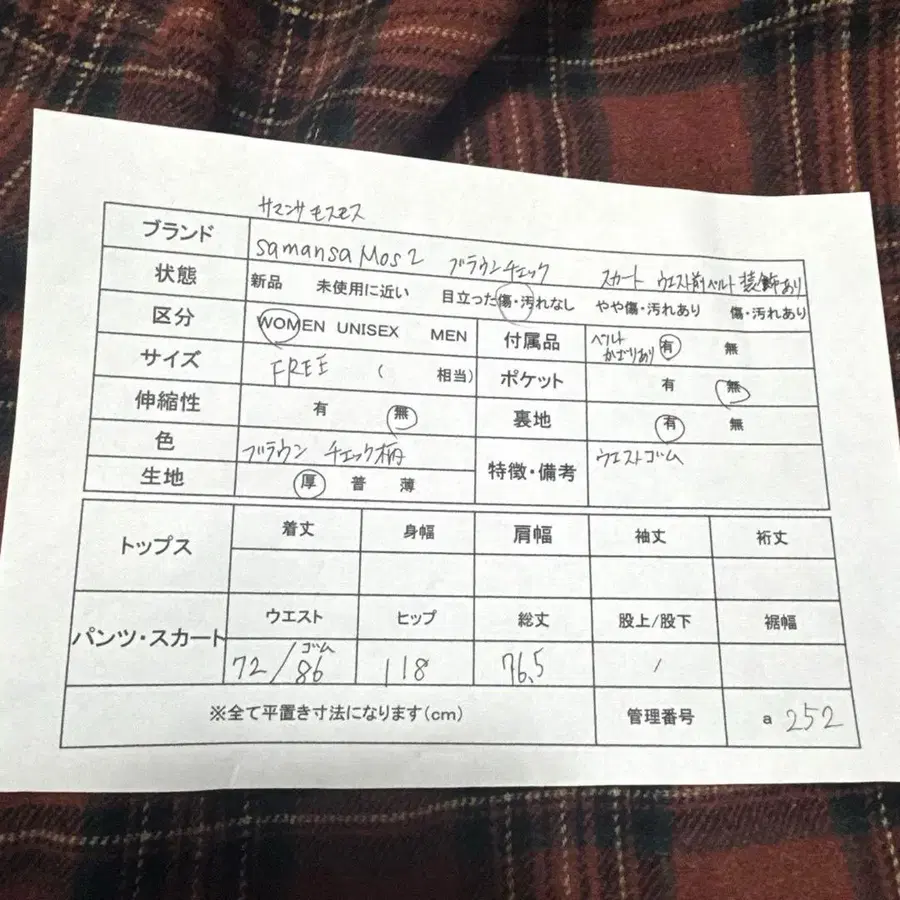 サマンサ モスモス
ブランド samansa Mos2 ブラウンチェック スカート ウエスト前ベルト装飾あり
状態 新品 未使用に近い 目立った傷・汚れなし やや傷・汚れあり 傷・汚れあり
区分 WOMEN UNISEX MEN 付属品 ベルトかざりあり 有 無
サイズ FREE ( 相当) ポケット 有 無
伸縮性 有 無 裏地 有 無
色 ブラウン チェック柄 特徴・備考 ウエストゴム
生地 厚 普 薄
トップス 着丈 身幅 肩幅 袖丈 裄丈
パンツ・スカート ウエスト ヒップ 総丈 股上/股下 裾幅
72/ゴム86 118 76.5 /
※全て平置き寸法になります(cm) 管理番号 a 252